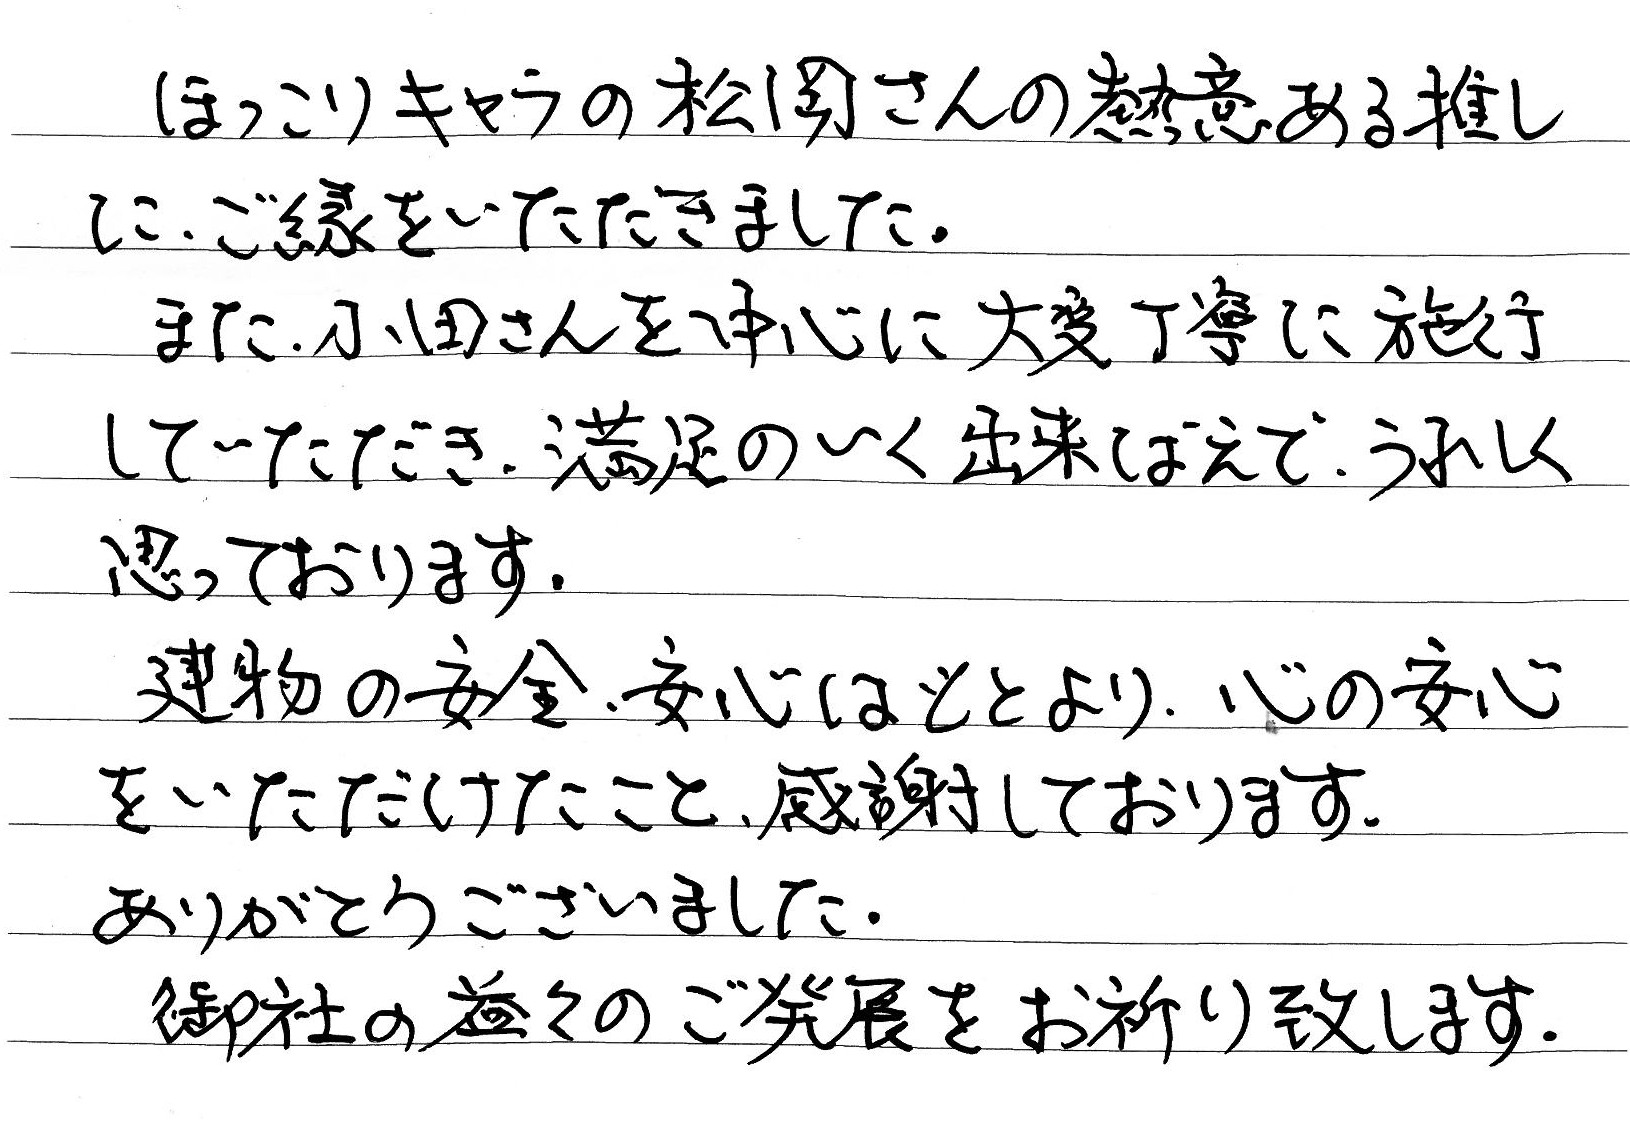 ほっこりキャラの松岡さんの熱意ある推し
に、ご縁をいただきました。
また、小田さんを中心に大変丁寧に施行
していただき、満足のいく出来ばえで、うれしく
思っております。
建物の安全、安心はもとより、心の安心
をいただけたこと、感謝しております。
ありがとうございました。
御社の益々のご発展をお祈り致します。